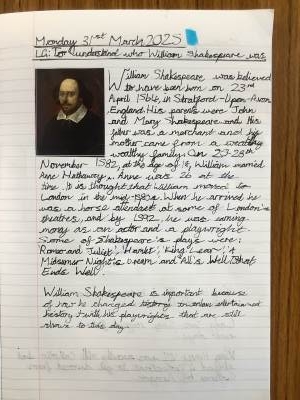 Monday 31st March 2025
LG: To understand who William Shakespeare was
William Shakespeare was believed
to have been born on 23rd
April 1564 in Stratford-Upon-Avon
England. His parents were John
and Mary Shakespeare and His
father was a merchant and his
mother came from a
wealthy family. On 27-28th
November 1582, at the age of 18, William married
Anne Hathaway. Anne was 26 at the
time. It is thought that William moved to
London in the mid-1580s. When he arrived he
was a horse attendant at some of London's
theatres, and by 1592 he was earning
money as an actor and a playwright.
Some of Shakespeare's plays were:
Romeo and Juliet, Hamlet, King Lear, A
Midsumer Night's Dream and All's Well That
Ends Well.
William Shakespeare is important because
of how he changed entertained
history with his playwrights that are still
shown to this day.